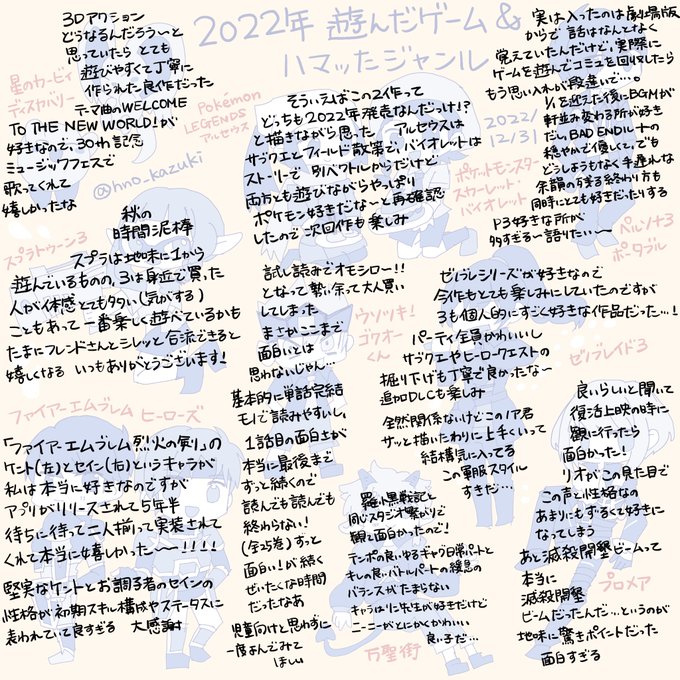 2022年 遊んだゲーム&
ハマッたジャンル
2022/
12/31
@hno_kazuki
星のカービィ
ディスカバリー
3Dアクション
どうなるんだろう〜と
思っていたら とても
遊びやすくて丁寧に
作られた良作だった
テーマ曲のWELCOME
TO THE NEW WORLD!が
好きなので、30th記念
ミュージックフェスで
歌ってくれて
嬉しかったな
Pokémon
LEGENDS
アルセウス
ポケットモンスター
スカーレット・
バイオレット
そういえばこの2作って
どっちも2022年発売なんだっけ!?
と描きながら思った アルセウスは
サブクエとフィールド散策で、バイオレットは
ストーリーで 別ベクトルからだけど
両方とも遊びながらやっぱり
ポケモン好きだな〜と再確認
したので 次回作も楽しみ
ペルソナ3
ポータブル
実は入ったのは劇場版
からで 話はなんとなく
覚えていたんだけど、実際に
ゲームを遊んでコミュを回収したら
もう思い入れが段違いで…。
1/を迎えた後にBGMが
軒並み変わる所が好き
だし BAD ENDルートの
穏やかで優しくて、でも
どうしようもなく手遅れな
余韻の残る終わり方も
同時にとても好きだったりする
P3好きな所が
多すぎる〜語りたい〜
スプラトゥーン3
秋の
時間泥棒
スプラは地味に1から
遊んでいるものの、3は身近で買った
人が体感とても多い(気がする)
こともあって一番楽しく遊べているかも
たまにフレンドさんとシレッと合流できると
嬉しくなる いつもありがとうございます!
ウソツキ!
ゴクオー
くん
試し読みでオモシロー!!
となって勢い余って大人買い
してしまった
まさかここまで
面白いとは
思わないじゃん…
基本的に単話完結
モノで読みやすいし、
1話目の面白さが
本当に最後まで
ずっと続くので
読んでも読んでも
終わらない!
(全25巻)ずっと
面白い!が続く
ぜいたくな時間
だったなあ
児童向けと思わずに
一度よんでみて
ほしい
ゼノブレイド3
ゼノブレシリーズが好きなので
今作もとても楽しみにしていたのですが
3も個人的にすごく好きな作品だった…!
パーティ全員かわいいし
サブクエやヒーロークエストの
掘り下げも丁寧で良かったな〜
追加DLCも楽しみ
全然関係ないけどこのノア君
サッと描いたわりに上手くいって
結構気に入ってる
この軍服スタイル
すきだ…
ファイアーエムブレム ヒーローズ
「ファイアーエムブレム烈火の剣」の
ケント(左)とセイン(右)というキャラが
私は本当に好きなのですが
アプリがリリースされて5年半
待ちに待って二人揃って実装されて
くれて本当に嬉しかった〜〜!!!!
堅実なケントとお調子者のセインの
性格が初期スキル構成やステータスに
表われていて良すぎる 大感謝
万聖街
羅小黒戦記と
同じスタジオ繋がりで
観て面白かったので!
テンポの良いゆるギャグ日常パートと
キレの良いバトルパートの緩急の
バランスがたまらない
キャラはリン先生が好きだけど
ニーニーがとにかくかわいい
良い子だ…
プロメア
良いらしいと聞いて
復活上映の時に
観に行ったら
面白かった!
リオがこの見た目で
この声と性格なの
あまりにもずるくて好きに
なってしまう
あと滅殺開墾ビームって
本当に
滅殺開墾
ビームだったんだ…というのが
地味に驚きポイントだった
面白すぎる